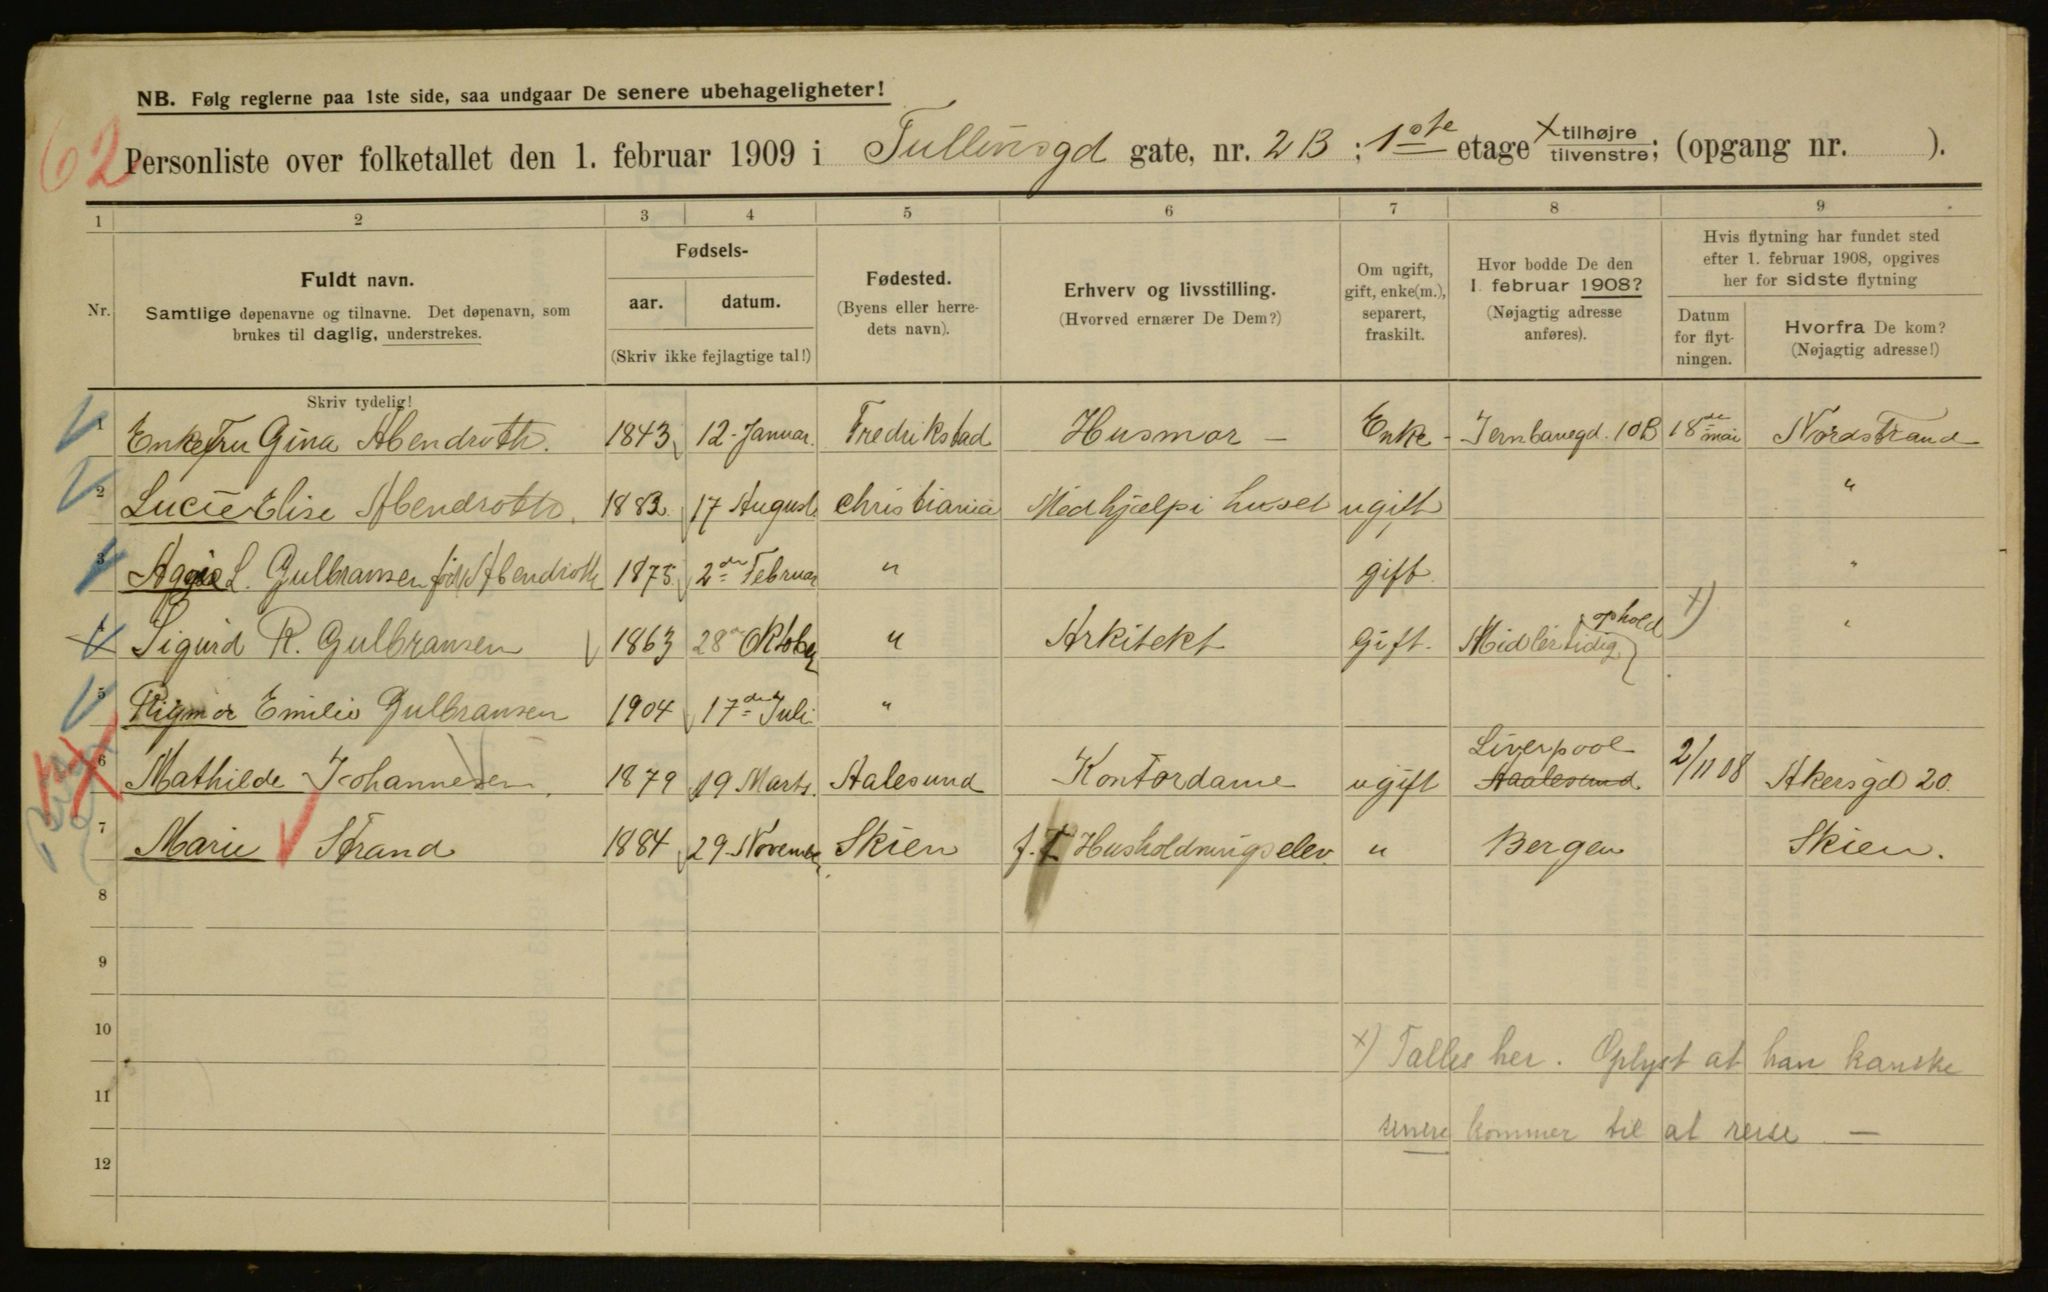 NB. Følg reglerne paa 1ste side, saa undgaar De senere ubehageligheter!
62
Personliste over folketallet den 1. februar 1909 i Tullinsgd gate, nr. 2B ; 1ste etage x tilhøjre / tilvenstre; (opgang nr. ).
1 2 3 4 5 6 7 8 9
Nr.
Fuldt navn.
Samtlige døpenavne og tilnavne. Det døpenavn, som
brukes til daglig, understrekes.
Fødsels-
aar. datum.
(Skriv ikke fejlagtige tal!)
Fødested.
(Byens eller herre-
dets navn).
Erhverv og livsstilling.
(Hvorved ernærer De Dem?)
Om ugift,
gift, enke(m.),
separert,
fraskilt.
Hvor bodde De den
1. februar 1908?
(Nøjagtig adresse
anføres).
Hvis flytning har fundet sted
efter 1. februar 1908, opgives
her for sidste flytning
Datum
for flyt-
ningen.
Hvorfra De kom?
(Nøjagtig adresse!)
Skriv tydelig!
1 Enkefru Gina Abendroth. 1843 12. Januar. Fredrikstad Husmor – Enke - Jernbanegd. 10B 18de mai Nordstrand
2 Lucie Elise Abendroth. 1883. 17 August Christiania Medhjælp i huset ugift "
3 L. Gulbransen født Abendroth 1875. 2den Februar " gift. "
4 Sigurd R. Gulbransen 1863 28 Oktober " Arkitekt Gift. Midlertidig ophold x) "
5 Rigmor Emilie Gulbransen 1904 17de Juli "
6 Mathilde Johannesen. 1879 19 Marts. Aalesund Kontordame ugift Liverpool Aalesund 2/11 08 Akersgd 20.
7 Marie Strand 1884 29. November Skien f. T Husholdningselev. " Bergen Skien.
8
9
10
x) Tælles her. Oplyst at han kanske
11
senere kommer til at reise –
12